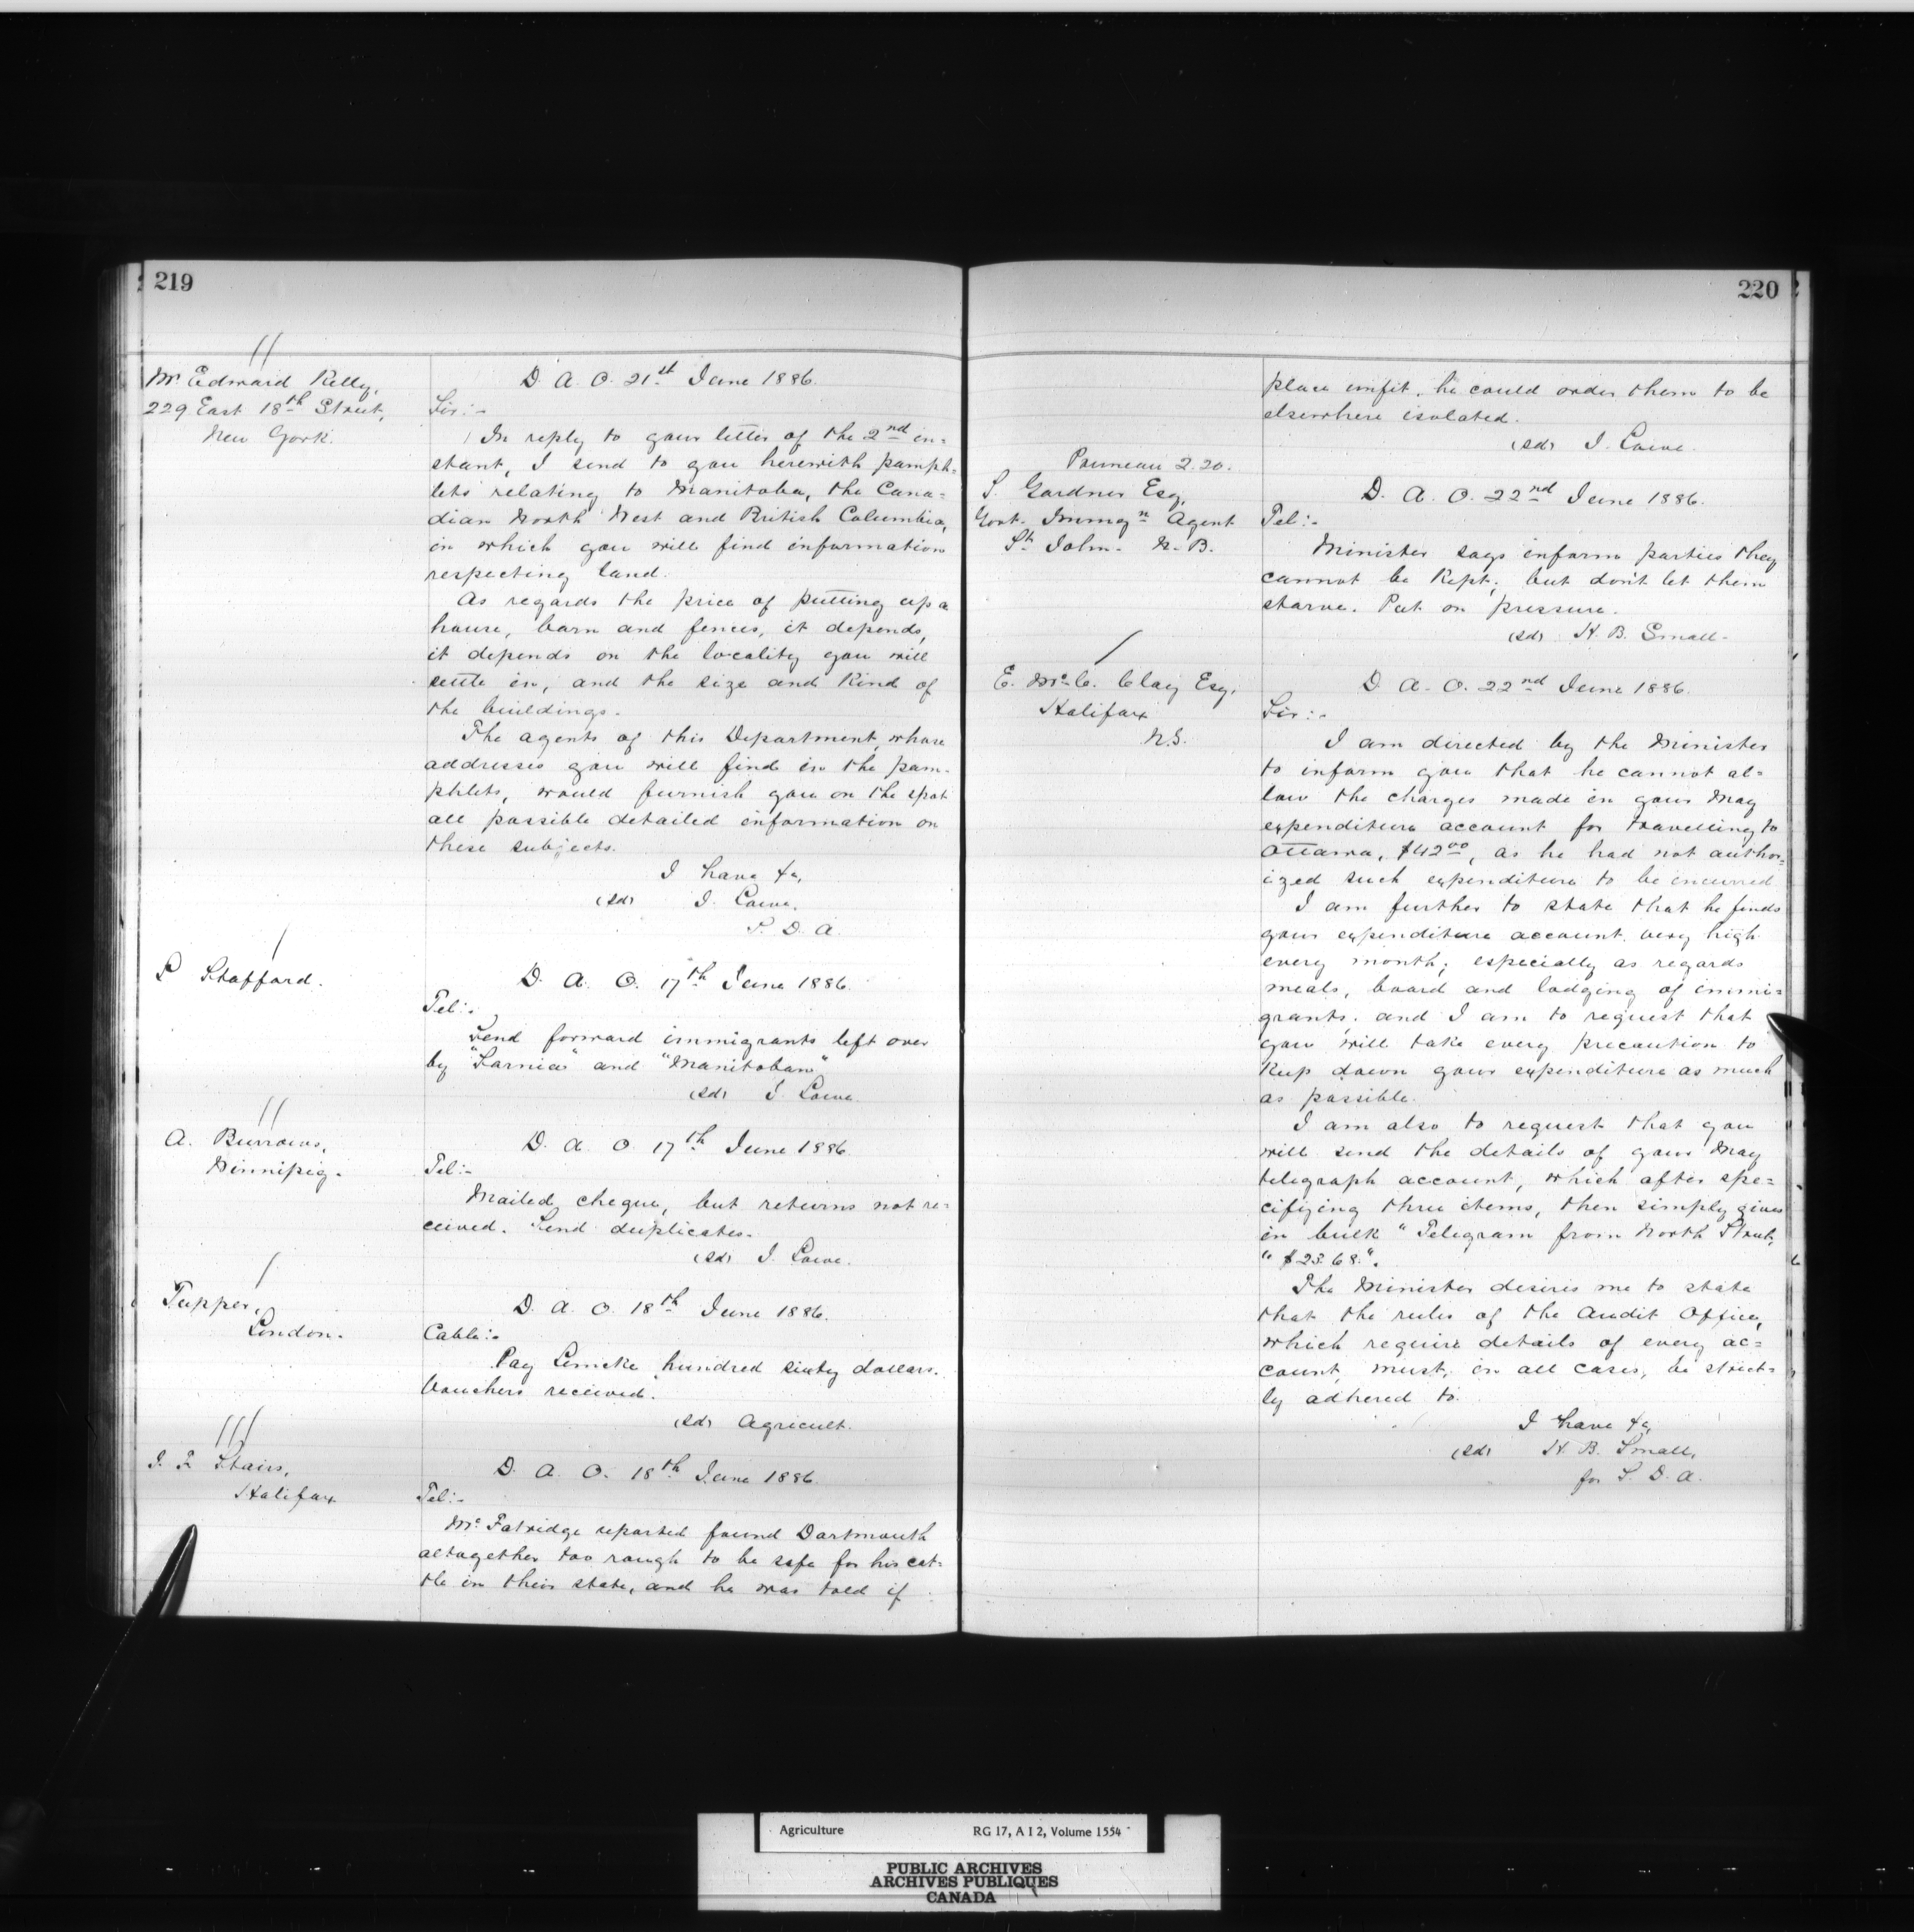 219
Mr. Edward Kelly,
229 East 18th Street,
New York.
D. A. O. 21st June 1886.
Sir:-
In reply to your letter of the 2nd in=
stant, I send to you herewith pamph=
lets relating to Manitoba, the Cana=
dian North West and British Columbia,
in which you will find information
respecting land.
As regards the price of putting up a
house, barn and fences, it depends,
it depends on the locality you will
settle in, and the size and kind of
the buildings.
The agents of this Department, whose
addresses you will find in the pam-
phlets, would furnish you on the spot
all possible detailed information on
these subjects.
I have &c,
(sd) J. Lowe,
S. D. A.
L Stafford.
D. A. O. 17th June 1886.
Tel:-
Send forward immigrants left over
by "Sarnia" and "Manitoban"
(sd) J. Lowe.
A. Burrows,
Winnipeg.
D. A. O 17th June 1886.
Tel:-
Mailed cheque, but returns not re=
ceived. Send duplicates.
(sd) J. Lowe.
Tupper,
London.
D. A. O. 18th June 1886.
Cable:-
Pay Lemcke hundred sixty dollars.
Vouchers received.
(sd) Agricult.
J. F. Stairs,
Halifax
D. A. O. 18th June 1886.
Tel:-
Mr. Fatridge reported found Dartmouth
altogether too rough to be safe for his cat=
tle in their state, and he was told if
220
place unfit, he could order them to be
elsewhere isolated.
(sd) J. Lowe.
2.20.
S. Gardner Esq,
Govt. Immgn Agent
St. John. N. B.
D. A. O. 22nd June 1886.
Tel:-
Minister says inform parties they
cannot be kept; but don't let them
starve. Put on pressure.
(sd) H. B. Small.
E. McC. Clay Esq,
Halifax
N.S.
D. A. O. 22nd June 1886.
Sir:-
I am directed by the Minister
to inform you that he cannot al=
low the charges made in your May
expenditure account for travelling to
Ottawa, $42.00, as he had not author=
ized such expenditure to be incurred
I am further to state that he finds
your expenditure account very high
every month; especially as regards
meals, board and lodging of immi=
grants; and I am to request that
you will take every precaution to
keep down your expenditure as much
as possible.
I am also to request that you
will send the details of your May
telegraph account, which after spe=
cifying three items, then simply gives
in bulk "Telegram from North Street,
" $23.68".
The Minister desires me to state
that the rules of the Audit Office,
which require details of every ac=
count, must, in all cases, be strict=
ly adhered to.
I have &c,
(sd) H. B. Small,
for S. D. A.
Agriculture RG 17, A I 2, Volume 1554
PUBLIC ARCHIVES
ARCHIVES PUBLIQUES
CANADA